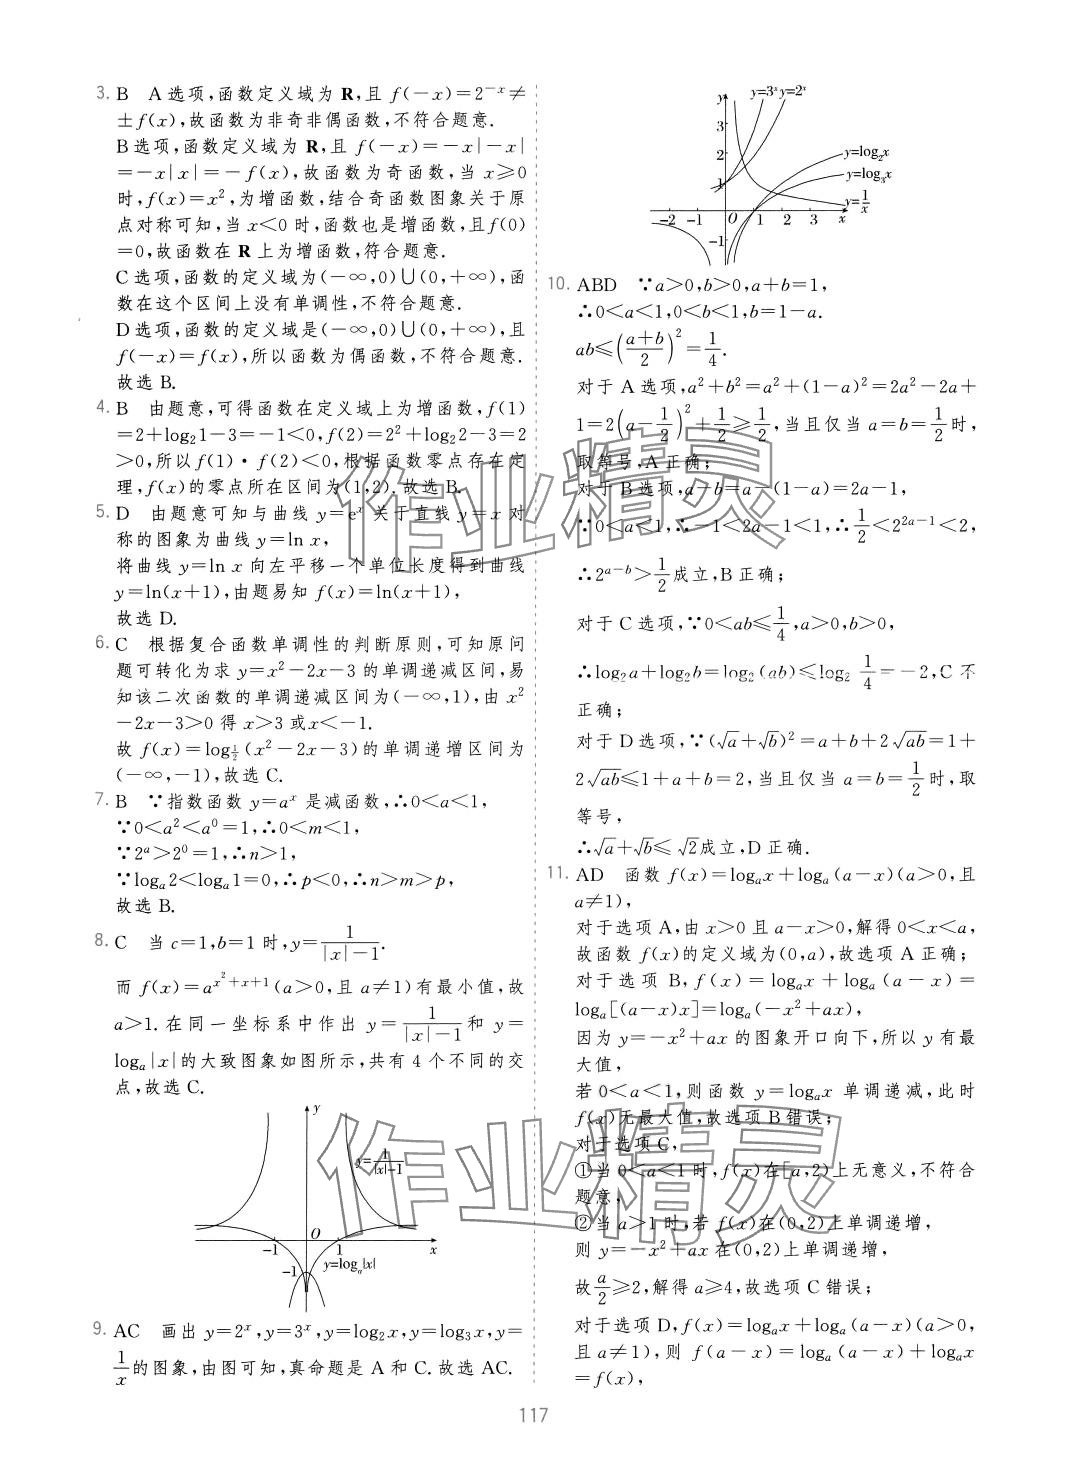 3. B　A 选项,函数定义域为 R,且 f(－x)＝2⁻ˣ≠
±f(x),故函数为非奇非偶函数,不符合题意.
B 选项,函数定义域为 R,且 f(－x)＝－x|－x|
＝－x|x|＝－f(x),故函数为奇函数,当 x≥0
时,f(x)＝x²,为增函数,结合奇函数图象关于原
点对称可知,当 x＜0 时,函数也是增函数,且f(0)
＝0,故函数在 R 上为增函数,符合题意.
C 选项,函数的定义域为(－∞,0)∪(0,＋∞),函
数在这个区间上没有单调性,不符合题意.
D 选项,函数的定义域是(－∞,0)∪(0,＋∞),且
f(－x)＝f(x),所以函数为偶函数,不符合题意.
故选 B.
4. B　由题意,可得函数在定义域上为增函数,f(1)
＝2＋log₂1－3＝－1＜0,f(2)＝2²＋log₂2－3＝2
＞0,所以 f(1)·f(2)＜0,根据函数零点存在定
理,f(x)的零点所在区间为(1,2).故选 B.
5. D　由题意可知与曲线 y＝eˣ 关于直线 y＝x 对
称的图象为曲线 y＝ln x,
将曲线 y＝ln x 向左平移一个单位长度得到曲线
y＝ln(x＋1),由题易知 f(x)＝ln(x＋1),
故选 D.
6. C　根据复合函数单调性的判断原则,可知原问
题可转化为求 y＝x²－2x－3 的单调递减区间,易
知该二次函数的单调递减区间为(－∞,1),由 x²
－2x－3＞0 得 x＞3 或x＜－1.
故 f(x)＝log_{1/2}(x²－2x－3)的单调递增区间为
(－∞,－1),故选 C.
7. B　∵指数函数 y＝aˣ 是减函数,∴0＜a＜1,
∵0＜a²＜a⁰＝1,∴0＜m＜1,
∵2ᵃ＞2⁰＝1,∴n＞1,
∵logₐ2＜logₐ1＝0,∴p＜0,∴n＞m＞p,
故选 B.
8. C　当 c＝1,b＝1 时,y＝1/(|x|－1).
而 f(x)＝a^{x²＋x＋1}(a＞0,且 a≠1)有最小值,故
a＞1.在同一坐标系中作出 y＝1/(|x|－1)和 y＝
logₐ|x|的大致图象如图所示,共有 4 个不同的交
点,故选 C.
y
y=1/(|x|-1)
O
-1
1
x
-1
y=logₐ|x|
9. AC　画出 y＝2ˣ,y＝3ˣ,y＝log₂x,y＝log₃x,y＝
1/x的图象,由图可知,真命题是 A 和 C.故选 AC.
y
y=3ˣ y=2ˣ
3
2
1
y=log₂x
y=log₃x
y=1/x
-2 -1 O 1 2 3 x
-1
10. ABD　∵a＞0,b＞0,a＋b＝1,
∴0＜a＜1,0＜b＜1,b＝1－a.
ab≤((a＋b)/2)²＝1/4.
对于 A 选项,a²＋b²＝a²＋(1－a)²＝2a²－2a＋
1＝2(a－1/2)²＋1/2≥1/2,当且仅当 a＝b＝1/2时,
取等号,A 正确;
对于 B 选项,a－b＝a－(1－a)＝2a－1,
∵0＜a＜1,∴－1＜2a－1＜1,∴1/2＜2^{2a－1}＜2,
∴2^{a－b}＞1/2成立,B 正确;
对于 C 选项,∵0＜ab≤1/4,a＞0,b＞0,
∴log₂a＋log₂b＝log₂(ab)≤log₂ 1/4＝－2,C 不
正确;
对于 D 选项,∵(√a＋√b)²＝a＋b＋2√ab＝1＋
2√ab≤1＋a＋b＝2,当且仅当 a＝b＝1/2时,取
等号,
∴√a＋√b≤√2成立,D 正确.
11. AD　函数 f(x)＝logₐx＋logₐ(a－x)(a＞0,且
a≠1),
对于选项 A,由 x＞0 且 a－x＞0,解得 0＜x＜a,
故函数 f(x)的定义域为(0,a),故选项 A 正确;
对于选项 B,f(x)＝logₐx＋logₐ(a－x)＝
logₐ[(a－x)x]＝logₐ(－x²＋ax),
因为 y＝－x²＋ax 的图象开口向下,所以 y 有最
大值,
若 0＜a＜1,则函数 y＝logₐx 单调递减,此时
f(x)无最大值,故选项 B 错误;
对于选项 C,
①当 0＜a＜1 时,f(x)在[a,2)上无意义,不符合
题意,
②当 a＞1 时,若 f(x)在(0,2)上单调递增,
则 y＝－x²＋ax 在(0,2)上单调递增,
故a/2≥2,解得 a≥4,故选项 C 错误;
对于选项 D,f(x)＝logₐx＋logₐ(a－x)(a＞0,
且 a≠1),则 f(a－x)＝logₐ(a－x)＋logₐx
＝f(x),
117
作业精灵
作业精灵